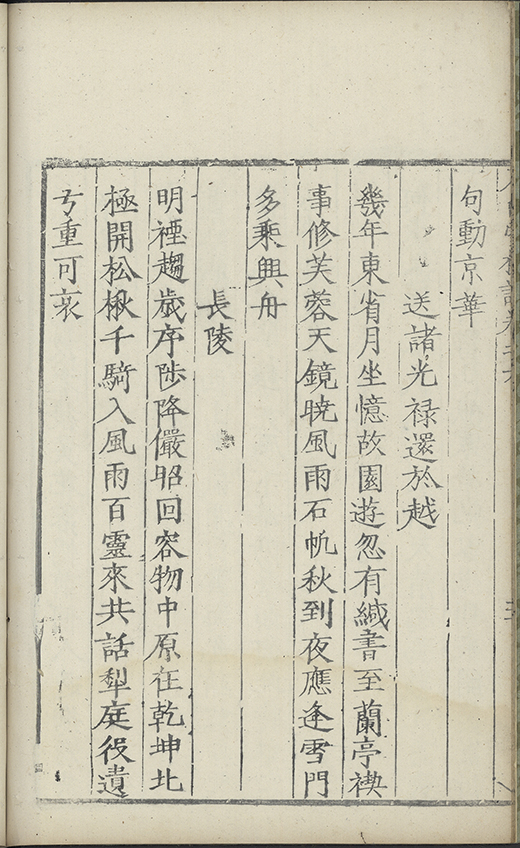 句動京華
送諸光禄還於越
幾年東省月坐憶故園遊忽有緘書至蘭亭禊
事修芙蓉天鏡曉風雨石帆秋到夜應逢雪門
多乗興舟
長陵
明禋趨歲序陟降儼昭回容物中原在乾坤北
極開松楸千騎入風雨百靈來共話犁庭役遺
弓重可哀